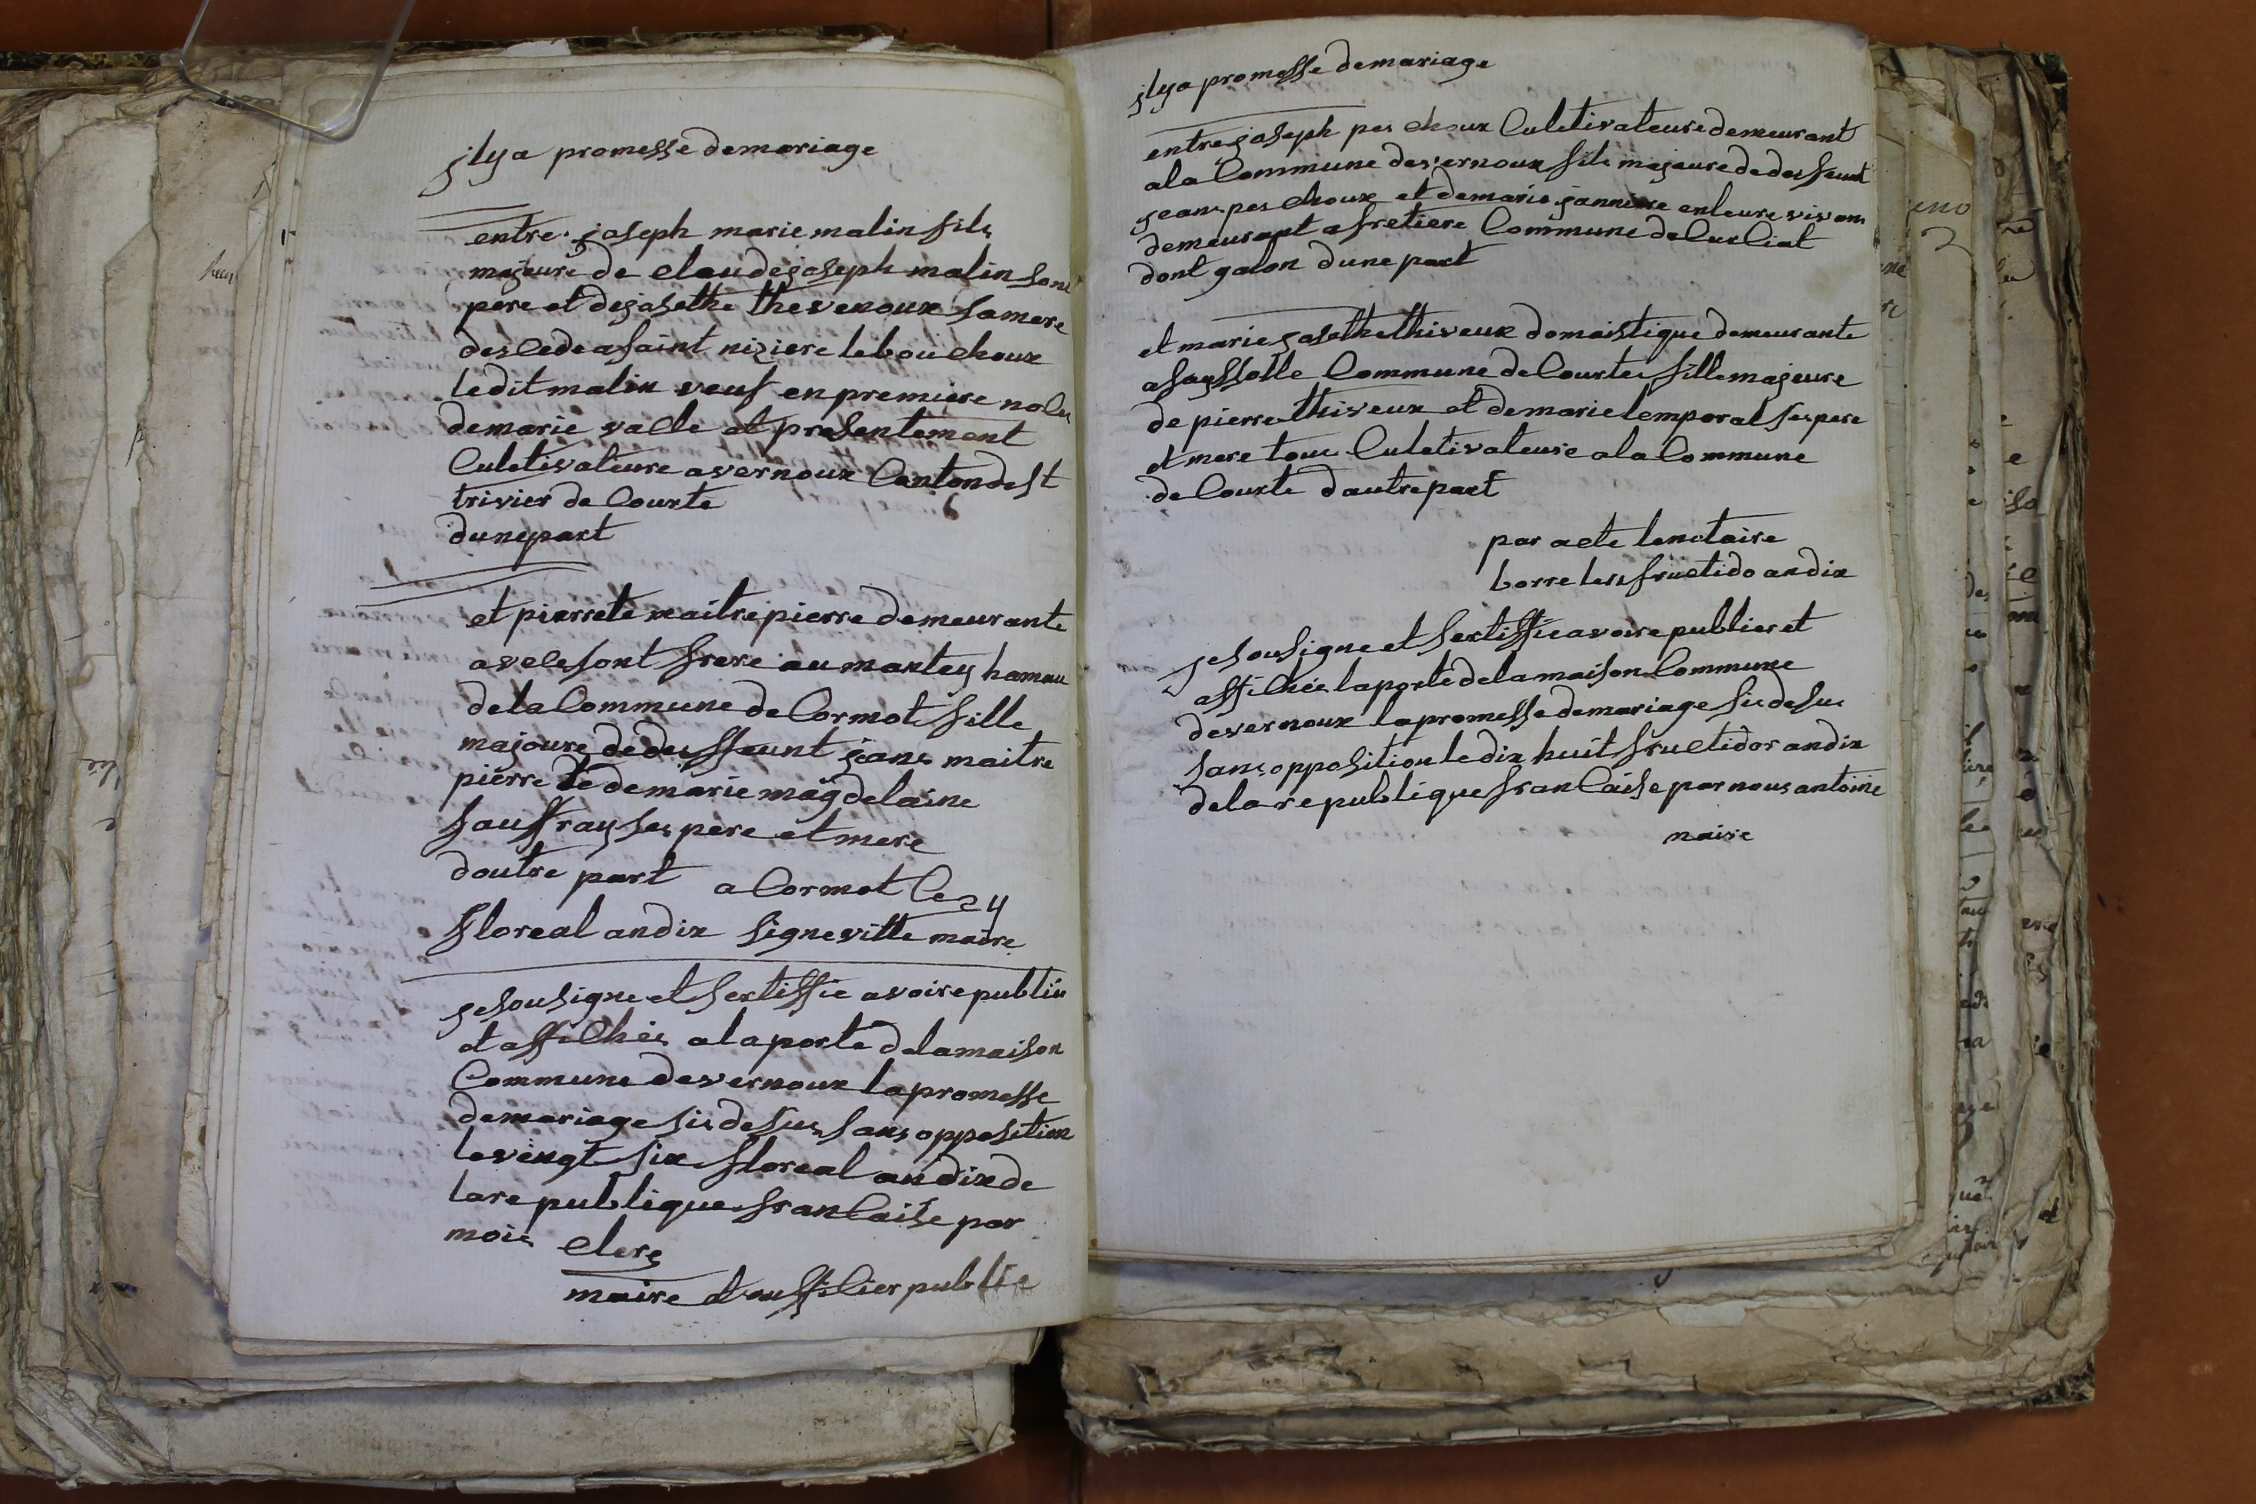 jlya promesse demariage
entre joseph marie malin fils
majeure de claudejoseph malin sont
pere et dejosethe thevenoux samere
descede asaint niziere lebouchoux
ledit malin veuf en premiere noles
demarie valle et presentement
Culetivateure avernoux Canton de st
trivier de Courte
dunepart
et pierrete maitrepierre demeurante
avecsont frere au mantey hamau
dela Commune de Cormot fille
majoure dedeffeunt jeans maitre
pierre et demarie magdelaine
Sauffray ses pere et mere
doutre part a Cormot le 24
floreal andix signeville maire
jesousigne et sertiffie avoire publier
et affichés alaporte delamaison
Commune devernoux lapromesse
demariage sis desus sans opposition
levengt six floreal andix de
lare publique francaise par
mois clerc
maire et officier public
jlya promesse demariage
entrejoseph peschoux Culetivateure demeurant
ala Commune devernoux fils majeure dedeffeunt
jeans peschoux et demarie janniere enleure vivans
demeurant afretiere Commune deCurCiat
dont galon dune part
et mariejosethethiveux domaistique demeurante
asayssolle Commune deCourtes fille majeure
de pierre thiveux et demarie temporal ses pere
et mere tous Culetivateure ala Commune
de Courte dautre part
par acte lenotaire
borre les fructido andix
jesousigne et sertiffie avoire publier et
affichés laporte delamaison Commune
devernoux lapromesse demariage sis desus
sans opposition ledix huit fructidor andix
delare publique francaise par nous antoine
maire